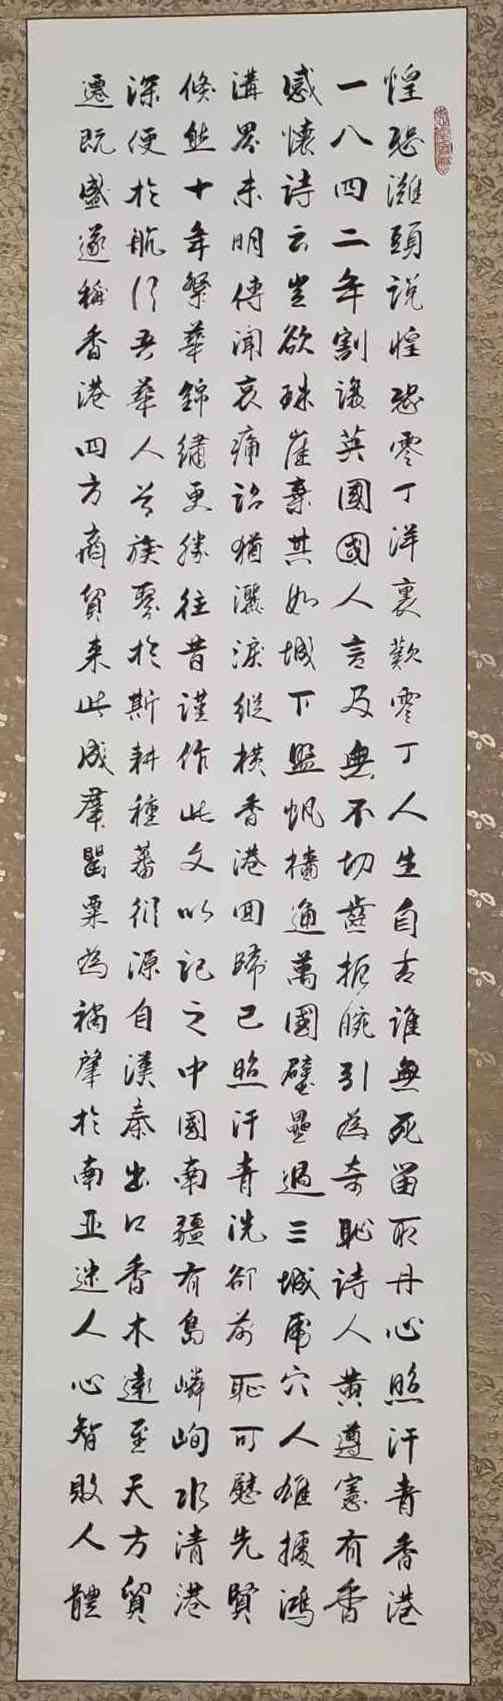 惶恐灘頭說惶恐零丁洋裏歎零丁人生自古誰無死留取丹心照汗青香港
一八四二年割讓英國國人言及無不切齒扼腕引為奇恥詩人黃遵憲有香
感懷詩云豈欲珠崖棄其如城下盟帆檣通萬國壁壘過三城虎穴人雄據鴻
溝界未明傳聞哀痛詔猶灑淚縱橫香港回歸已照汗青洗卻前恥可慰先賢
倏忽十年繁華錦繡更勝往昔謹作此文以記之中國南疆有島嶙峋水清港
深便於航行吾華人民族聚於斯耕種蕃衍源自漢秦出口香木遠至天方貿
遷既盛遂稱香港四方商貿來此成羣罌粟為禍肇於南亞迷人心智敗人體